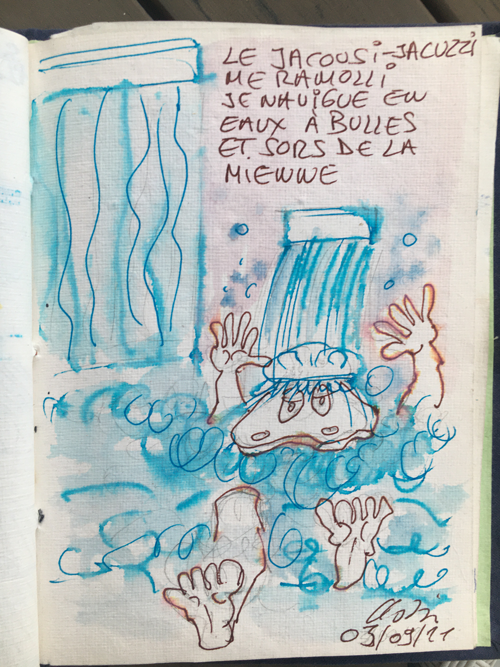 LE JACOUSI-JACUZZI
ME RAMOLLI
JE NAVIGUE EN
EAUX A BULLES
ET SORS DE LA
MIENNE
03/09/21